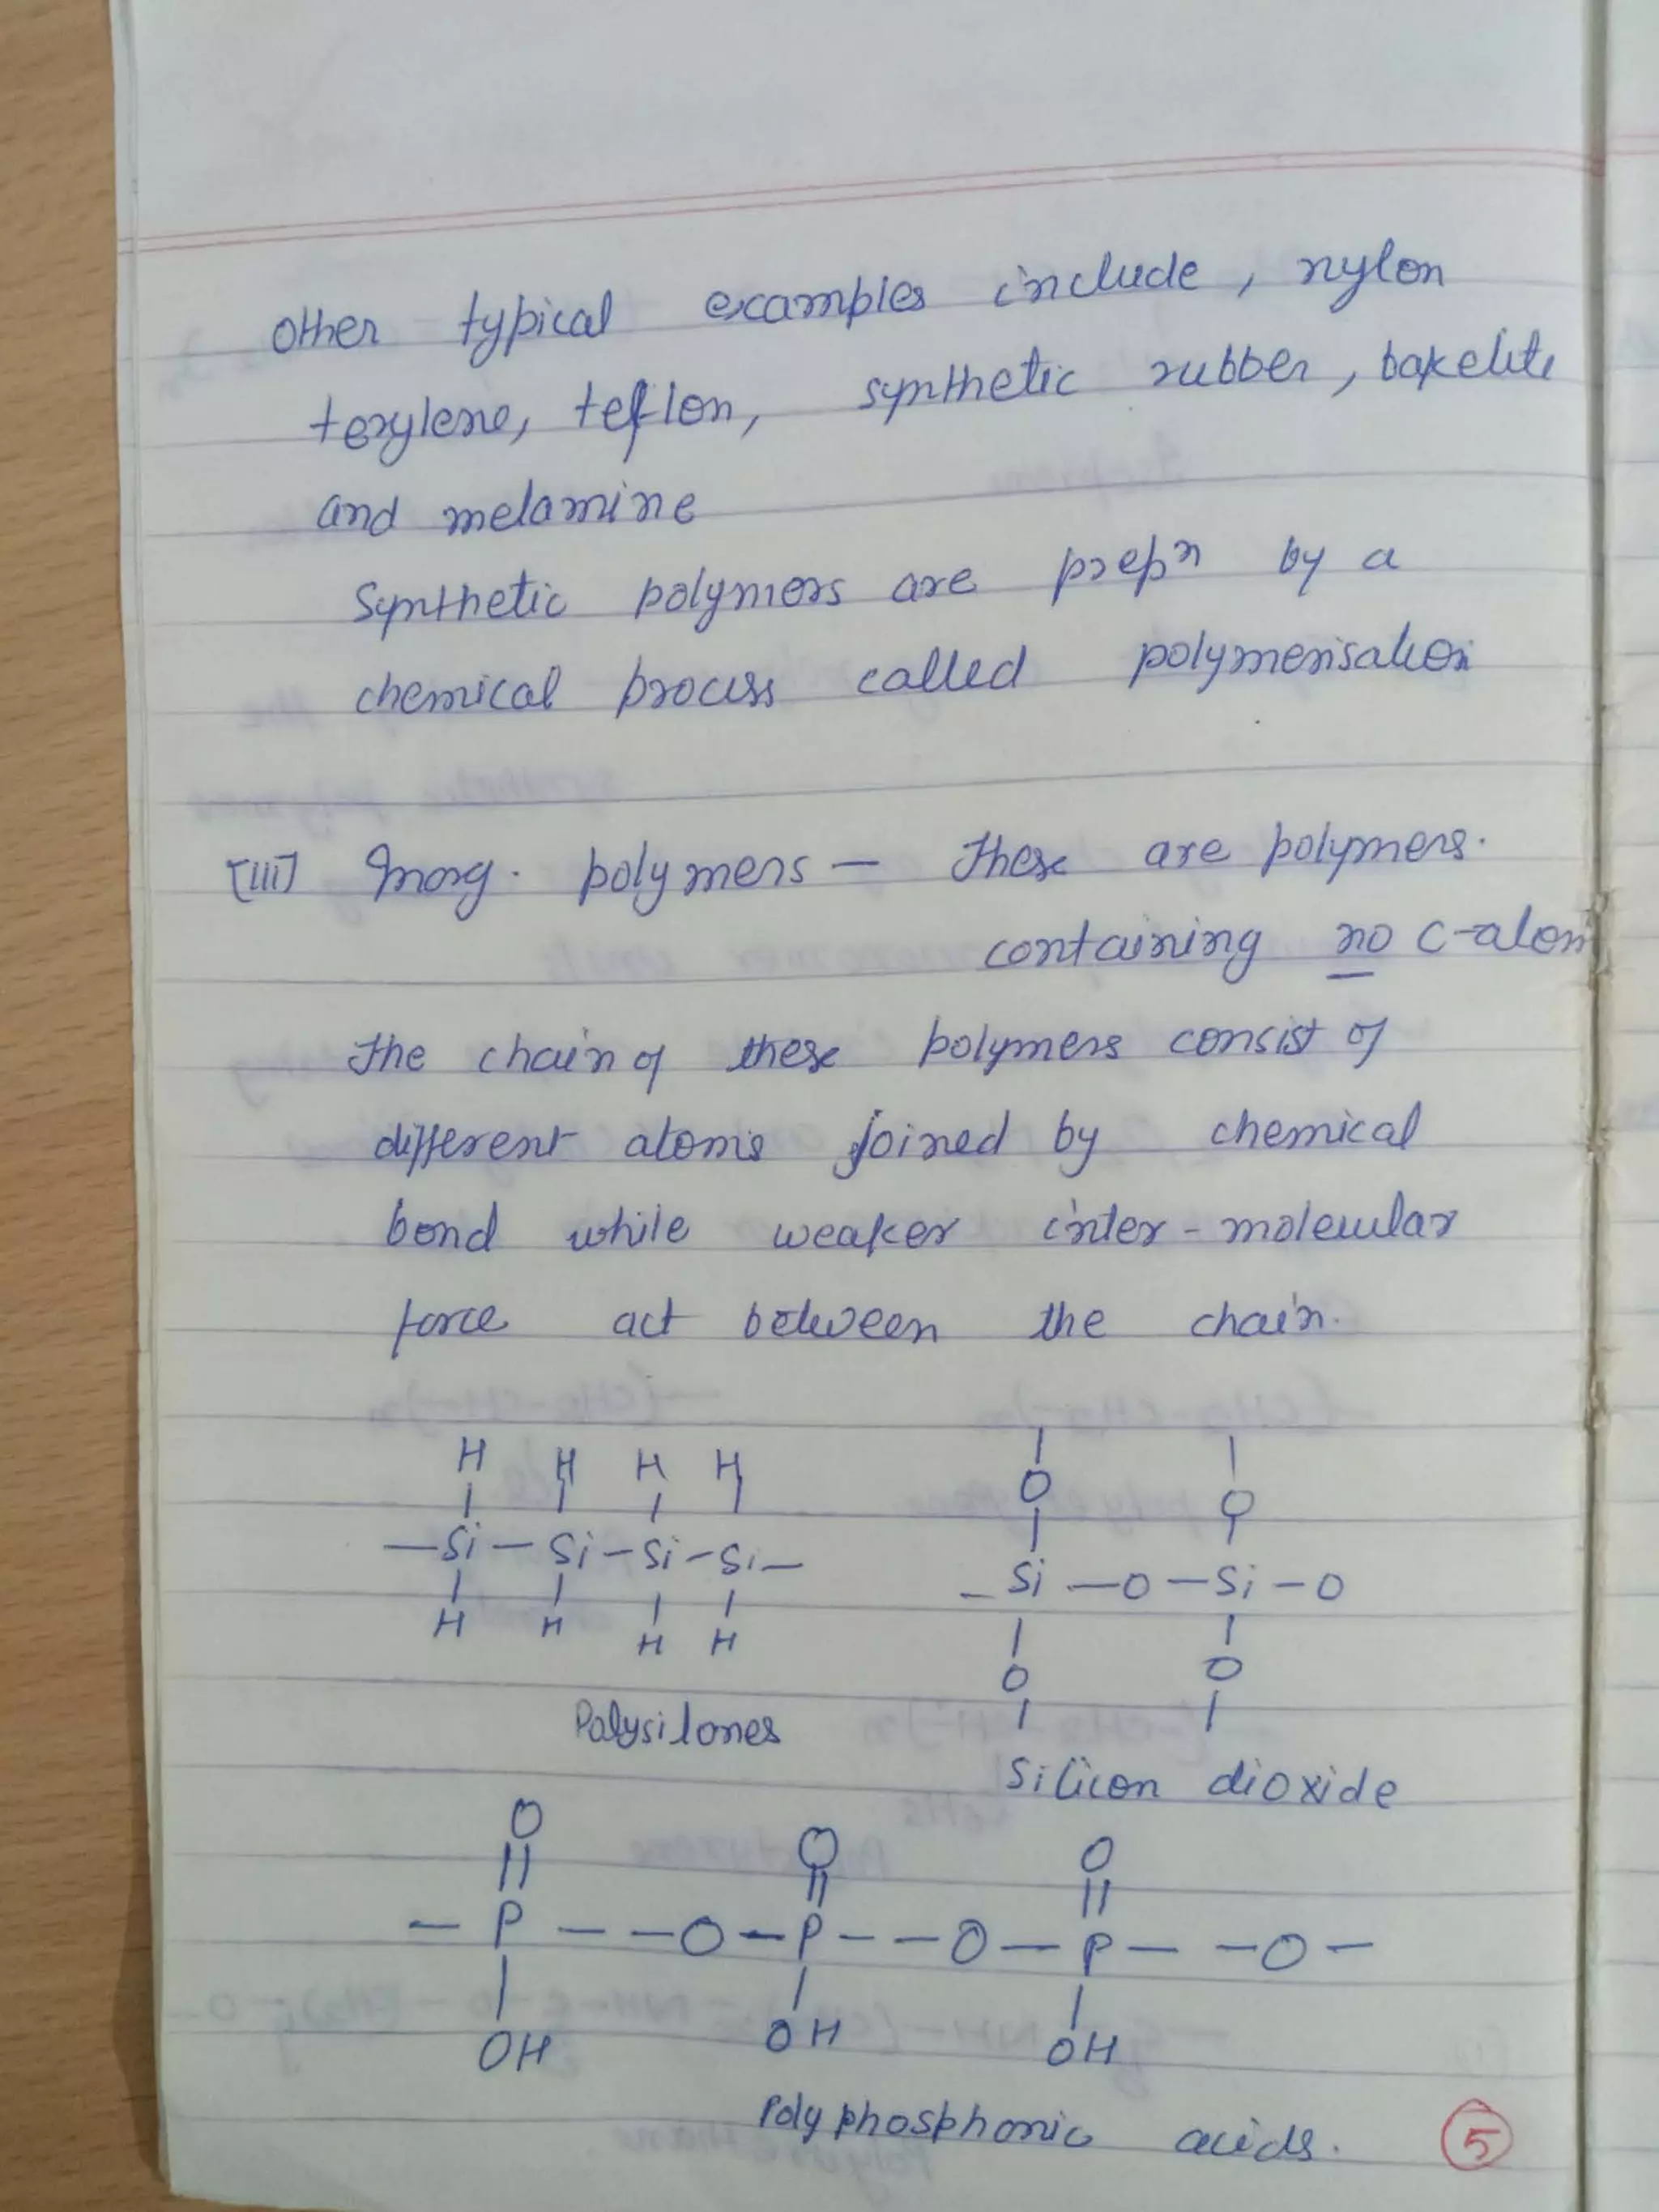 other typical examples include, nylon
terylene, teflon, synthetic rubber, bakelite
and melamine
Synthetic polymers are prepn by a
chemical process called polymerisation
[III] Inorg. polymers — These are polymers.
containing no C-atom
The chain of these polymers consist of
different atoms joined by chemical
bond while weaker inter-molecular
force act between the chain.
H H H H
—Si—Si—Si—Si—
H H H H
Polysilones
O O
—Si—O—Si—O
O O
Silicon dioxide
O O O
—P— —O—P— —O—P— —O—
OH OH OH
Polyphosphonic acids.
5